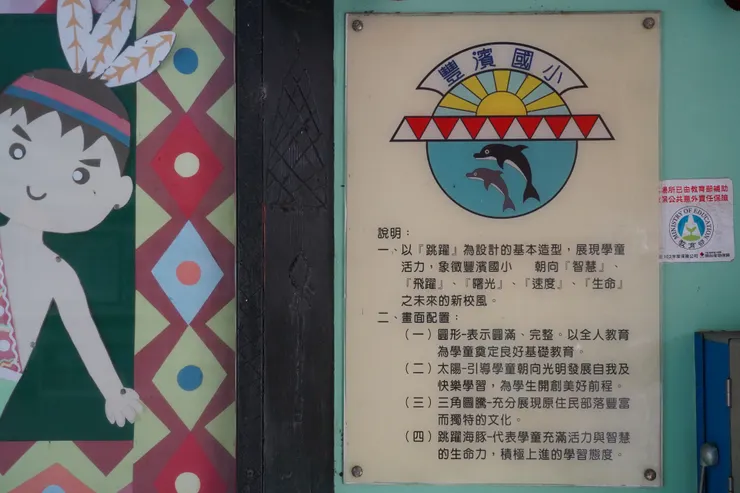 豐濱國小
說明：
一、以『跳躍』為設計的基本造型，展現學童
活力，象徵豐濱國小　朝向『智慧』、
『飛躍』、『曙光』、『速度』、『生命』
之未來的新校風。
二、畫面配置：
（一）圓形-表示圓滿、完整。以全人教育
為學童奠定良好基礎教育。
（二）太陽-引導學童朝向光明發展自我及
快樂學習，為學生開創美好前程。
（三）三角圖騰-充分展現原住民部落豐富
而獨特的文化。
（四）跳躍海豚-代表學童充滿活力與智慧
的生命力，積極上進的學習態度。
場所已由教育部補助
公共意外責任保險
MINISTRY OF EDUCATION
教育部